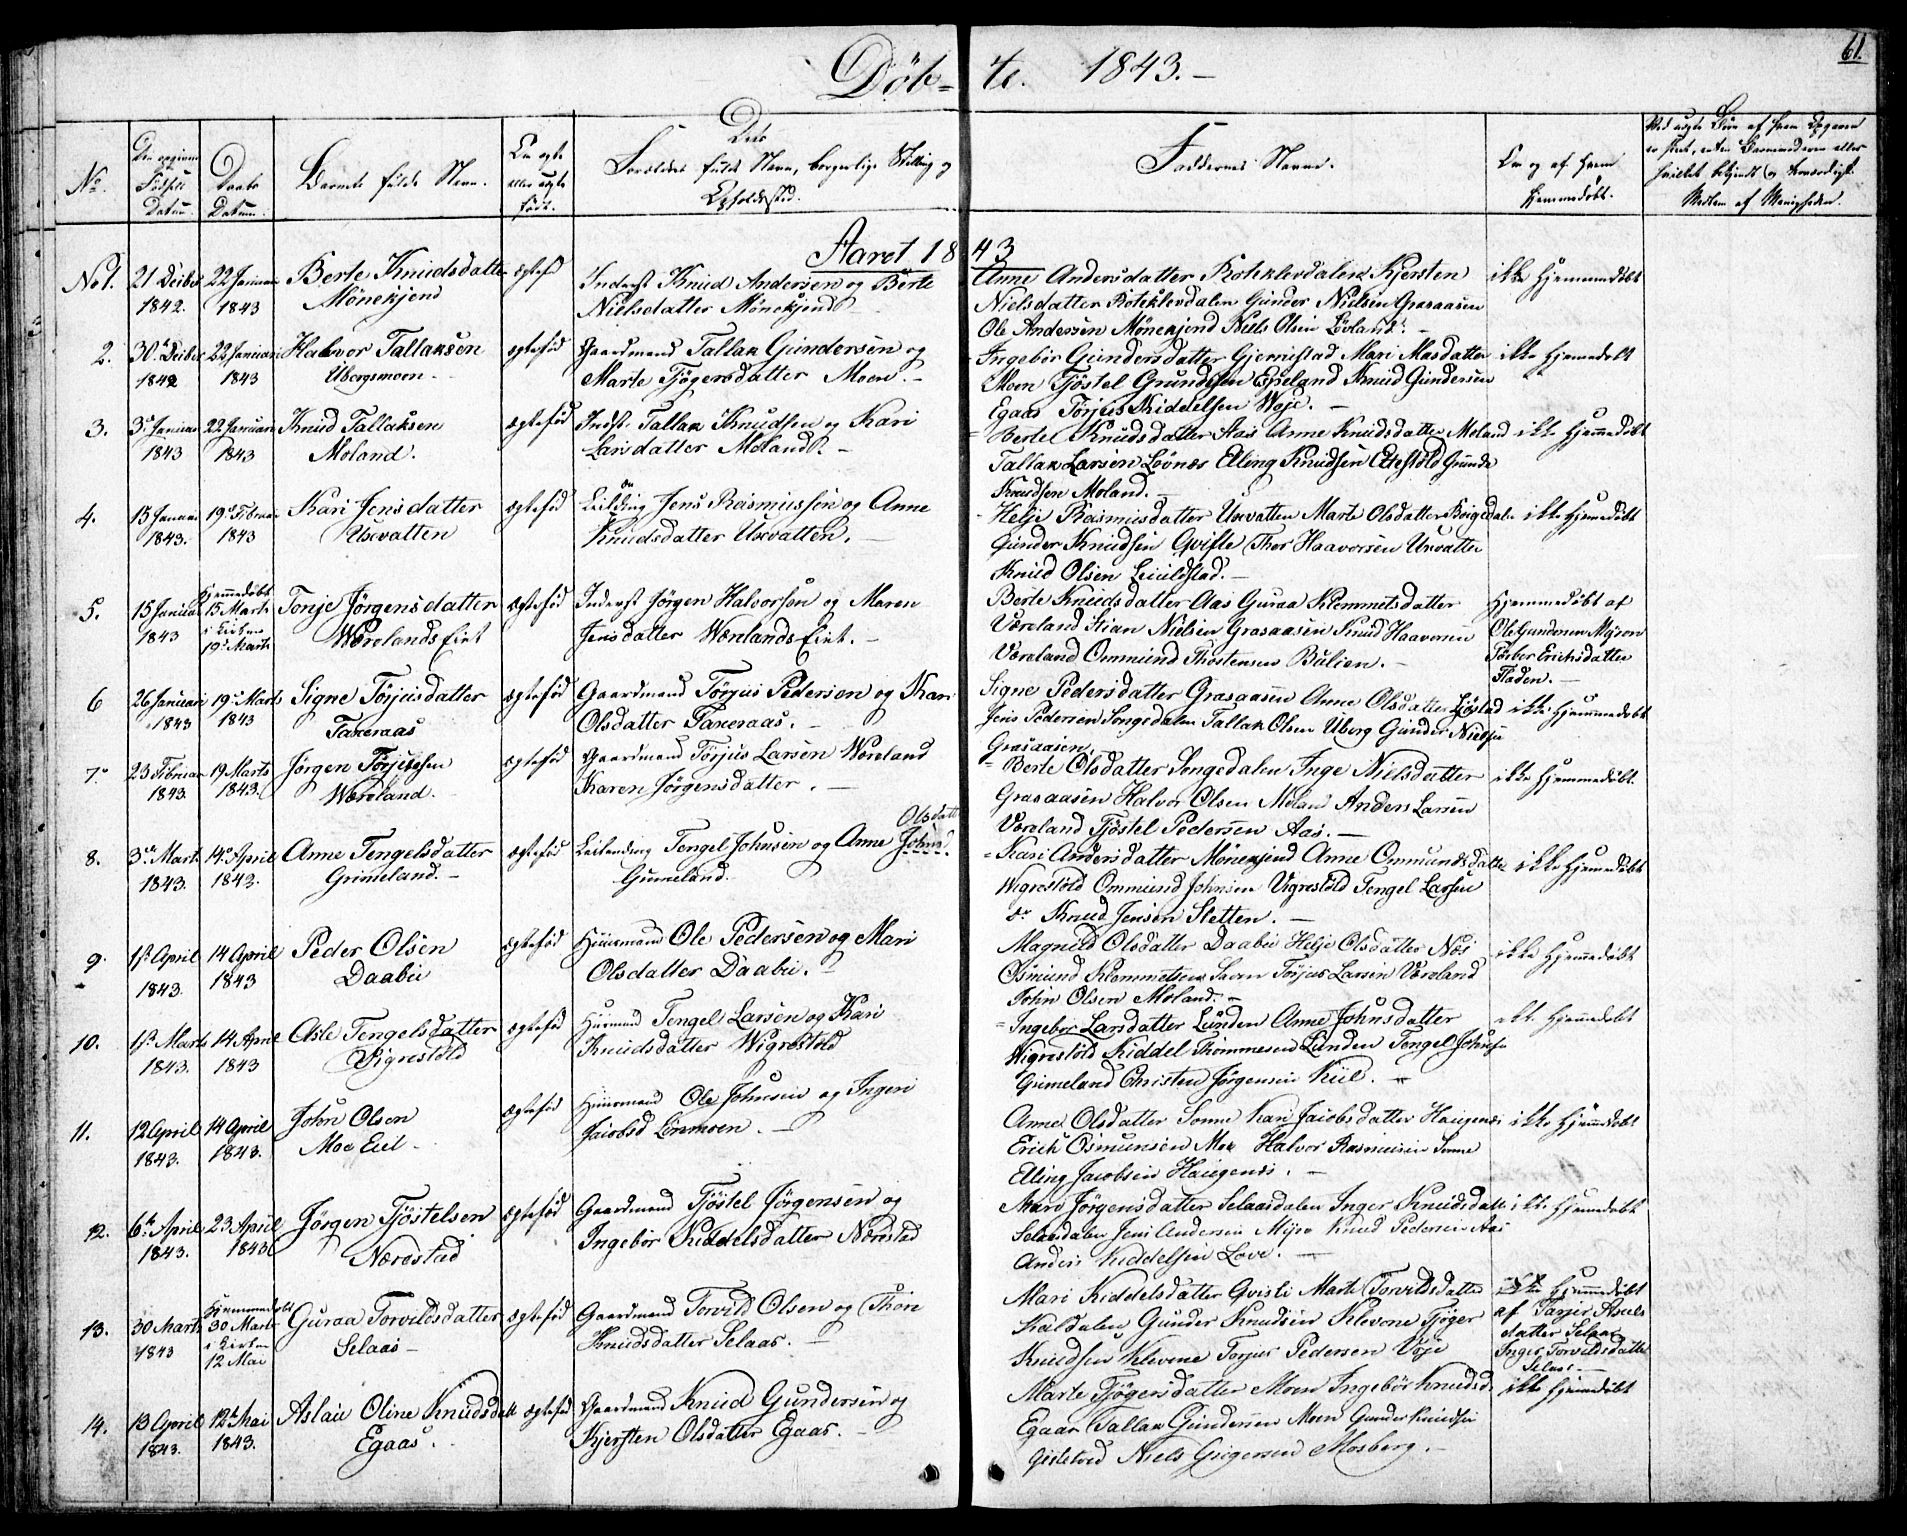 61.
Døb= te. 1843.–
No.
Den opgivne Fødsels Datum
Daabs Datum.
Barnets fulde Navn.
Om ægte eller uægte født.
Dets Forældres fulde Navn, borgerlige Stilling og Opholdssted.
Faddernes Navne.
Om og af hvem hjemmedøbt.
Aaret 1843
No 1.
21 Decbr 1842.
22 Januar 1843
Berte Knudsdatter
Mönekjend
ægtefød
Inderst Knud Andersen og Berte
Nielsdatter Mönekjend
Anne Andersdatter Roteklevdalen Kjersten
Nielsdatter Roteklevdalen Gunder Nielsen Grasaasen
Ole Andersen Mönekjend Niels Olsen Lövland. –
ikke Hjemmedöbt
2.
30 Decbr 1842
22 Januari 1843
Halvor Tallaksen
Ubergsmoen
ægtefød
Gaardmand Tallak Gundersen og
Marte Tjögersdatter Moen. –
Ingebör Gundersdatter Gjerrestad Mari Masdatter
Moen Tjöstel Grundesen Espeland Knud Gundersen
Egaas Törjus Kiddelsen Woje. –
ikke Hjemmedöbt
3.
3 Januar 1843
22 Januari 1843
Knud Tallaksen
Moland.
ægtefød
Indst. Tallak Knudsen og Kari
Larsdatter Moland. –
Bertel Knudsdatter Aas Anne Knudsdatter Moland
Tallak Larsen Lövnes Elling Knudsen Gunde
Knudsen Moland. –
ikke Hjemmedöbt
4.
15 Januar 1843.
19 Februar 1843
Kari Jensdatter
Uxevatten
ægtefød
Leilding Jens Rasmussen og Anne
Knudsdatter Uxevatten. –
Helje Rasmusdatter Uxevatten Marte Olsdatter
Gunder Knudsen Qviste Thor Haavorsen Uxvatten
Knud Olsen –
ikke Hjemmedöbt
5.
15 Januar 1843
Hjemmedöbt 15 Marts i Kirken 19 Marts
Tonje Jörgensdatter
Wærelands Eiet
ægtefød
Inderst Jörgen Halvorsen og Maren
Jensdatter Wærelands Eiet. –
Berte Knudsdatter Aas Guraa Klemmetsdatter
Væreland Stian Nielsen Grasaasen Knud Haavorsen
Væreland Ommund Thostensen Bulien. –
Hjemmedöbt af
Ole Gundersen Myron
Erichsdatter
Fladen. –
6
26 Januari 1843
19 Marts 1843
Signe Törjusdatter
Taxeraas
ægtefød
Gaardmand Törjus Pedersen og Kari
Olsdatter Taxeraas. –
Signe Pedersdatter Grasaasen Anne Olsdatter
Jens Pedersen Songedalen Tallak Olsen Uberg Gunder Nielsen
Grasaasen. –
ikke Hjemmedöbt
7.
23 Februar 1843
19 Marts 1843.
Jörgen Törjussen
Wæreland.
ægtefød
Gaardmand Törjus Larsen Wæreland
Karen Jörgensdatter. –
Berte Olsdatter Songedalen Inge Nielsdatter
Grasaasen Halvor Olsen Moland Anders Larsen
Væreland Tjöstel Pedersen Aas. –
ikke Hjemmedöbt.
8.
3 Marts 1843.
14 April 1843.
Anne Tengelsdatter
Grimeland. –
ægtefød
Leilending Tengel Johnsen og Anne Johns. Olsdatt
Grimeland.
Kari Andersdatter Mönekjend Anne Ommundsdatter
Wigrestöld Ommund Johnsen Vigrestöld Tengel Larsen
do Knud Jensen Sletten. –
ikke Hjemmedöbt
9.
1st April 1843.
14 April 1843
Peder Olsen
Daabu
ægtefød
Huusmand Ole Pedersen og Mari
Olsdatter Daabu. –
Magnild Olsdatter Daabu Helje Olsdatter Næs
Osmund Klemmetsen Törjus Larsen Væreland
John Olsen Moland. –
ikke Hjemmedöbt
10.
1st Marts 1843.
14 April 1843
Asle Tengelsdatter
Vigrestöld
ægtefød
Huusmand Tengel Larsen og Kari
Knudsdatter Wigrestöld
Ingebör Larsdatter Lunden Anne Johnsdatter
Wigrestöld Kiddel Thommesen Lunden Tengel Johnsen
Grimeland Christen Jörgensen Kiil. –
ikke Hjemmedöbt
11.
12 April 1843.
14 April 1843.
John Olsen
Moe Eiet
ægtefød
Huusmand Ole Johnsen og Ingeri
Jacobsd Linmoen. –
Anne Olsdatter Sonne Kari Jacobsdatter Haugenes
Erich Osmunsen Moe Halvor Rasmussen Sonne
Elling Jacobsen Haugenes. –
ikke Hjemmedöbt
12.
6 April 1843.
23 April 1843
Jörgen Tjöstelsen
Nærestad
ægtefød
Gaardmand Tjöstel Jörgensen og
Ingebör Kiddelsdatter Nærestad
Mari Jörgensdatter Selaasdalen Inger Knudsdatter
Selaasdalen Jens Andersen Myre Knud Pedersen Aas
Anders Kiddelsen Lave. –
ikke Hjemmedöbt
13.
30 Marts 1843
Hjemmedöbt 30 Marts i Kirken 12 Mai
Guraa Torvildsdatter
Selaas –
ægtefød
Gaardmand Torvild Olsen og Thon
Knudsdatter Selaas. –
Mari Kiddelsdatter Qvisti Marte Torvildsdatter
Kaldalen Gunder Knudsen Klevene Tjöger
Knudsen Klevene Torjus Pedersen Voje
ikke Hjemmedöbt
af
datter Selaas
Inger Torvildsdatter
Selaas –
14.
13 April 1843.
12 Mai 1843.
Aslau Oline Knudsdatt
Egaas.
ægtefød
Gaardmand Knud Gundersen og
Kjersten Olsdatter Egaas. –
Marte Tjögersdatter Moen Ingebör Knudsd.
Egaas Tallak Gundersen Moen Gunder Knudsen
Niels Gregersen Mosberg. –
ikke Hjemmedöbt